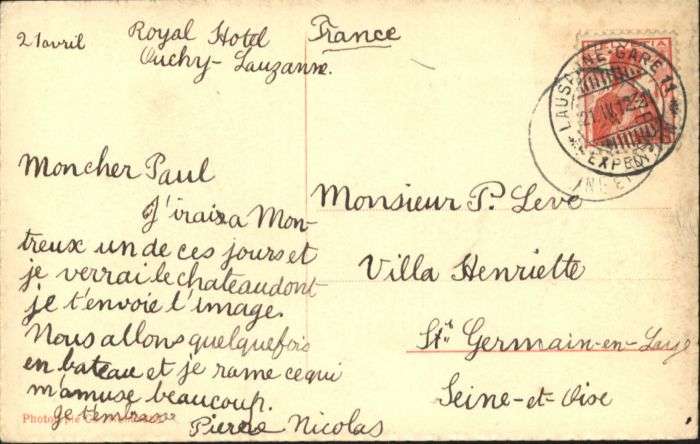 21 avril Royal Hotel
Ouchy-Lauzanne.
France
HELVETIA
LAUSANNE-GARE 11
21.IV.12.
EXPED.
Moncher Paul
J'irai a Mon-
treux un de ces jours et
je verrai le chateau dont
je t'envoie l'image.
Nous allons quelquefois
en bateau et je rame ce qui
m'amuse beaucoup.
Je t'embrasse
Pierre Nicolas
Monsieur P. Leve
Villa Henriette
St Germain-en-Laye
Seine-et-Oise